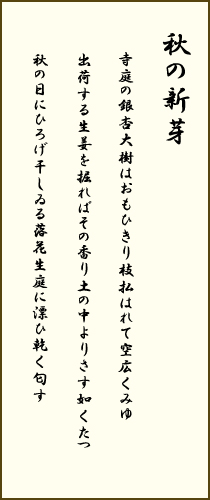 秋の新芽
寺庭の銀杏大樹はおもひきり枝払はれて空広くみゆ
出荷する生姜を掘ればその香り土の中よりさす如くたつ
秋の日にひろげ干しゐる落花生庭に漂ひ乾く匂す